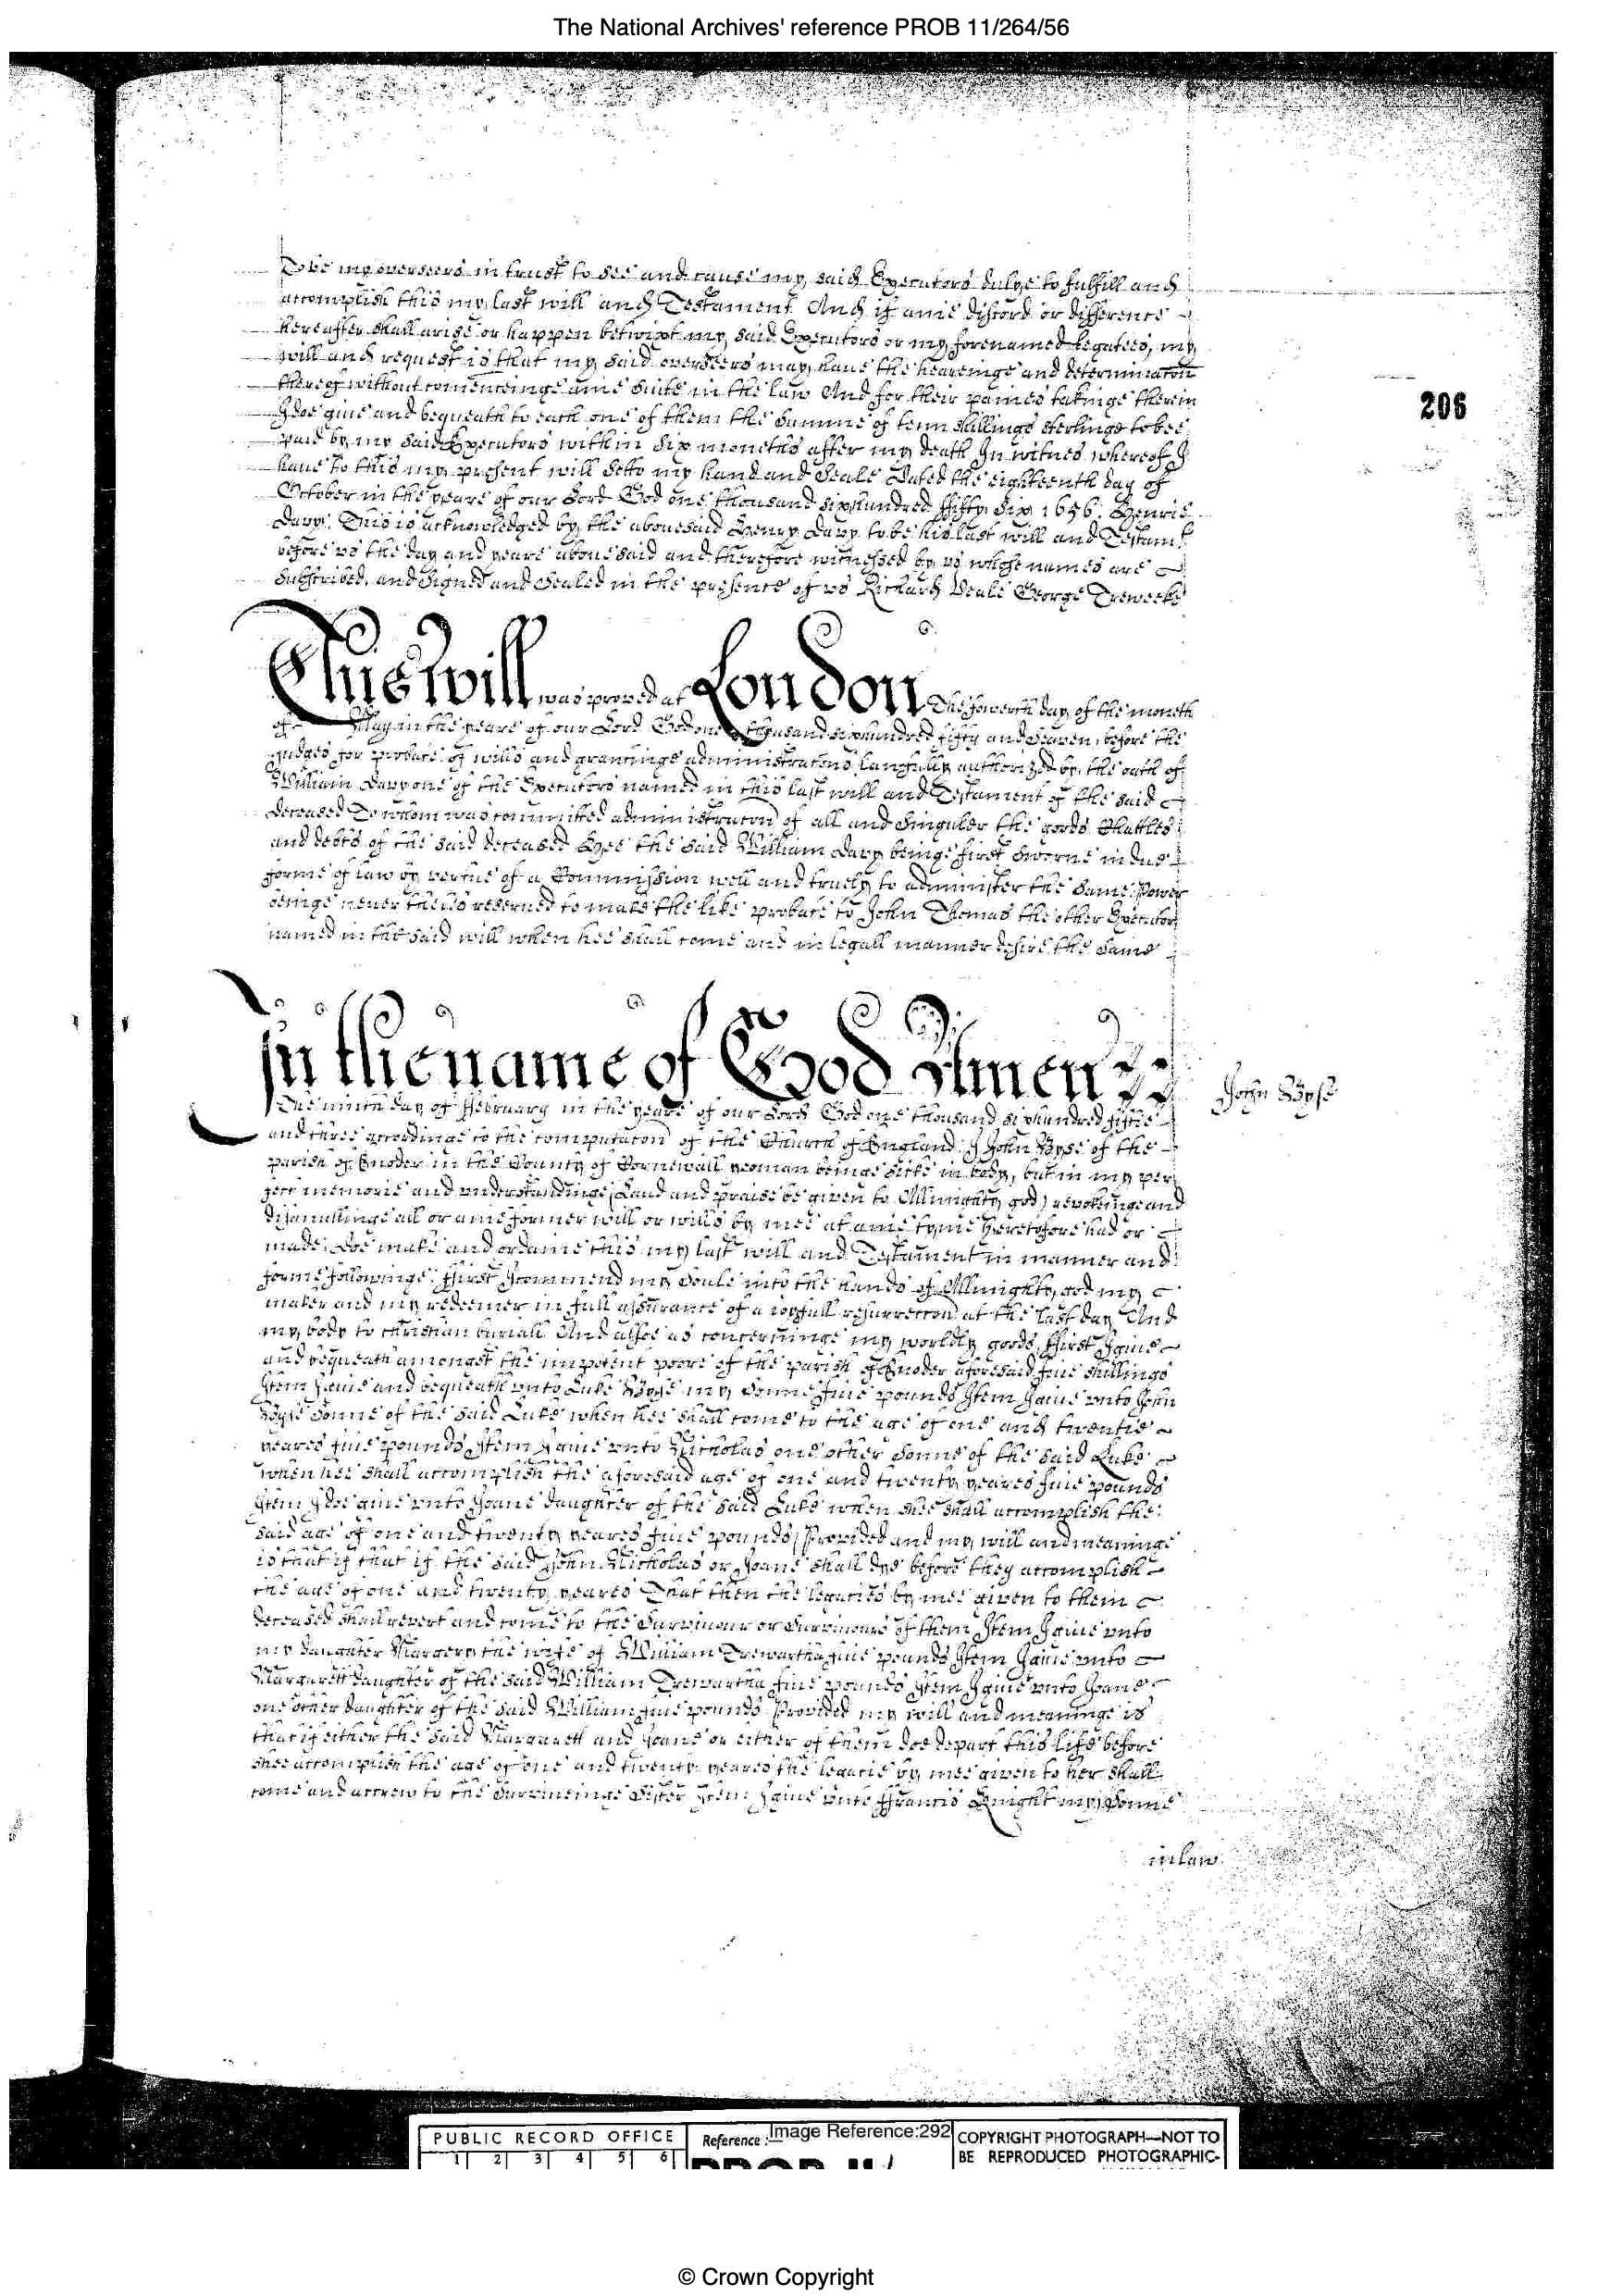 The National Archives' reference PROB 11/264/56
To be my overseers in trust to see and cause my said Executors dulye to fulfill and
accomplish this my last will and Testament And if anie discord or difference
hereafter shall arise or happen betwixt my said Executors or my forenamed legatees, my
will and request is that my said overseers may have the heareinge and determinacon
thereof without comenceinge anie suite in the law And for their paines takinge therein
I doe give and bequeath to each one of them the summe of tenn shillings sterlinge to bee
paid by my said Executors within six moneths after my death In witnes whereof I
have to this my present will sette my hand and seale Dated the eighteenth day of
October in the yeare of our Lord God one thousand sixhundred ffifty six 1656. Henrie
Davy. This is acknowledged by the abovesaid Henry Davy to be his last will and Testamt
before vs the day and yeare abovesaid and therefore witnessed by vs whose names are
subscribed, and signed and sealed in the presence of vs Richard Veale George Treweeke
This will was proved at London the fowerth day of the moneth
of May in the yeare of our Lord God one thousand sixhundred fifty and seaven, before the
judges for probate of wills and grantinge administracons lawfully authorized by the oath of
William Davy one of the Executors named in this last will and Testament of the said
deceased To whom was committed administracon of all and singuler the goods Chattles
and debts of the said deceased Hee the said William Davy beinge first sworne in due
forme of law by vertue of a Commission well and truely to administer the same Power
beinge nevertheles reserved to make the like probate to John Thomas the other Executor
named in the said will when hee shall come and in legall manner desire the same
206
In the name of God Amen
John Vyse
The ninth day of ffebruary in the yeare of our Lord God one thousand sixhundred fiftie
and three accordinge to the computacon of the Church of England I John Vyse of the
parish of Enoder in the County of Cornewall yeoman beinge sicke in body, but in my per
fect memorie and understandinge (Laud and praise be given to Allmighty god) revokeinge and
disanullinge all or anie former will or wills by mee at anie tyme heretofore had or
made. Doe make and ordaine this my last will and Testament in manner and
forme followinge. ffirst I commend my soule into the hands of Allmighty god my
maker and my redeemer in full assurance of a ioyfull resurreccon at the last day And
my body to christian buriall And alsoe as concerninge my worldly goods, ffirst I give
and bequeath amongst the impotent poore of the parish of Enoder aforesaid five shillings
Item I give and bequeath vnto Luke Vyse my sonne five pounds Item I give vnto John
Vyse sonne of the said Luke when hee shall come to the age of one and twentie
yeares five pounds Item I give vnto Nicholas one other sonne of the said Luke
when hee shall accomplish the aforesaid age of one and twenty yeares five pounds
Item I doe give vnto Joane daughter of the said Luke when shee shall accomplish the
said age of one and twenty yeares five pounds Provided and my will and meaninge
is that if that if the said John Nicholas or Joane shall dye before they accomplish
the age of one and twenty yeares That then the legacies by mee given to them
deceased shall revert and come to the survivour or survivours of them Item I give vnto
my daughter Margery the wife of William Trewartha five pounds Item I give vnto
Margarett daughter of the said William Trewartha five pounds Item I give vnto Joane
one other daughter of the said William five pounds Provided my will and meaninge is
that if either the said Margarett and Joane or either of them doe depart this life before
shee accomplish the age of one and twenty yeares the legacie by mee given to her shall
come and accrew to the surviveinge sister Item I give vnto ffrancis Knight my sonne
in law
PUBLIC RECORD OFFICE
1 2 3 4 5 6
Reference :-
Image Reference:292
PROB 11/
COPYRIGHT PHOTOGRAPH—NOT TO
BE REPRODUCED PHOTOGRAPHIC-
© Crown Copyright